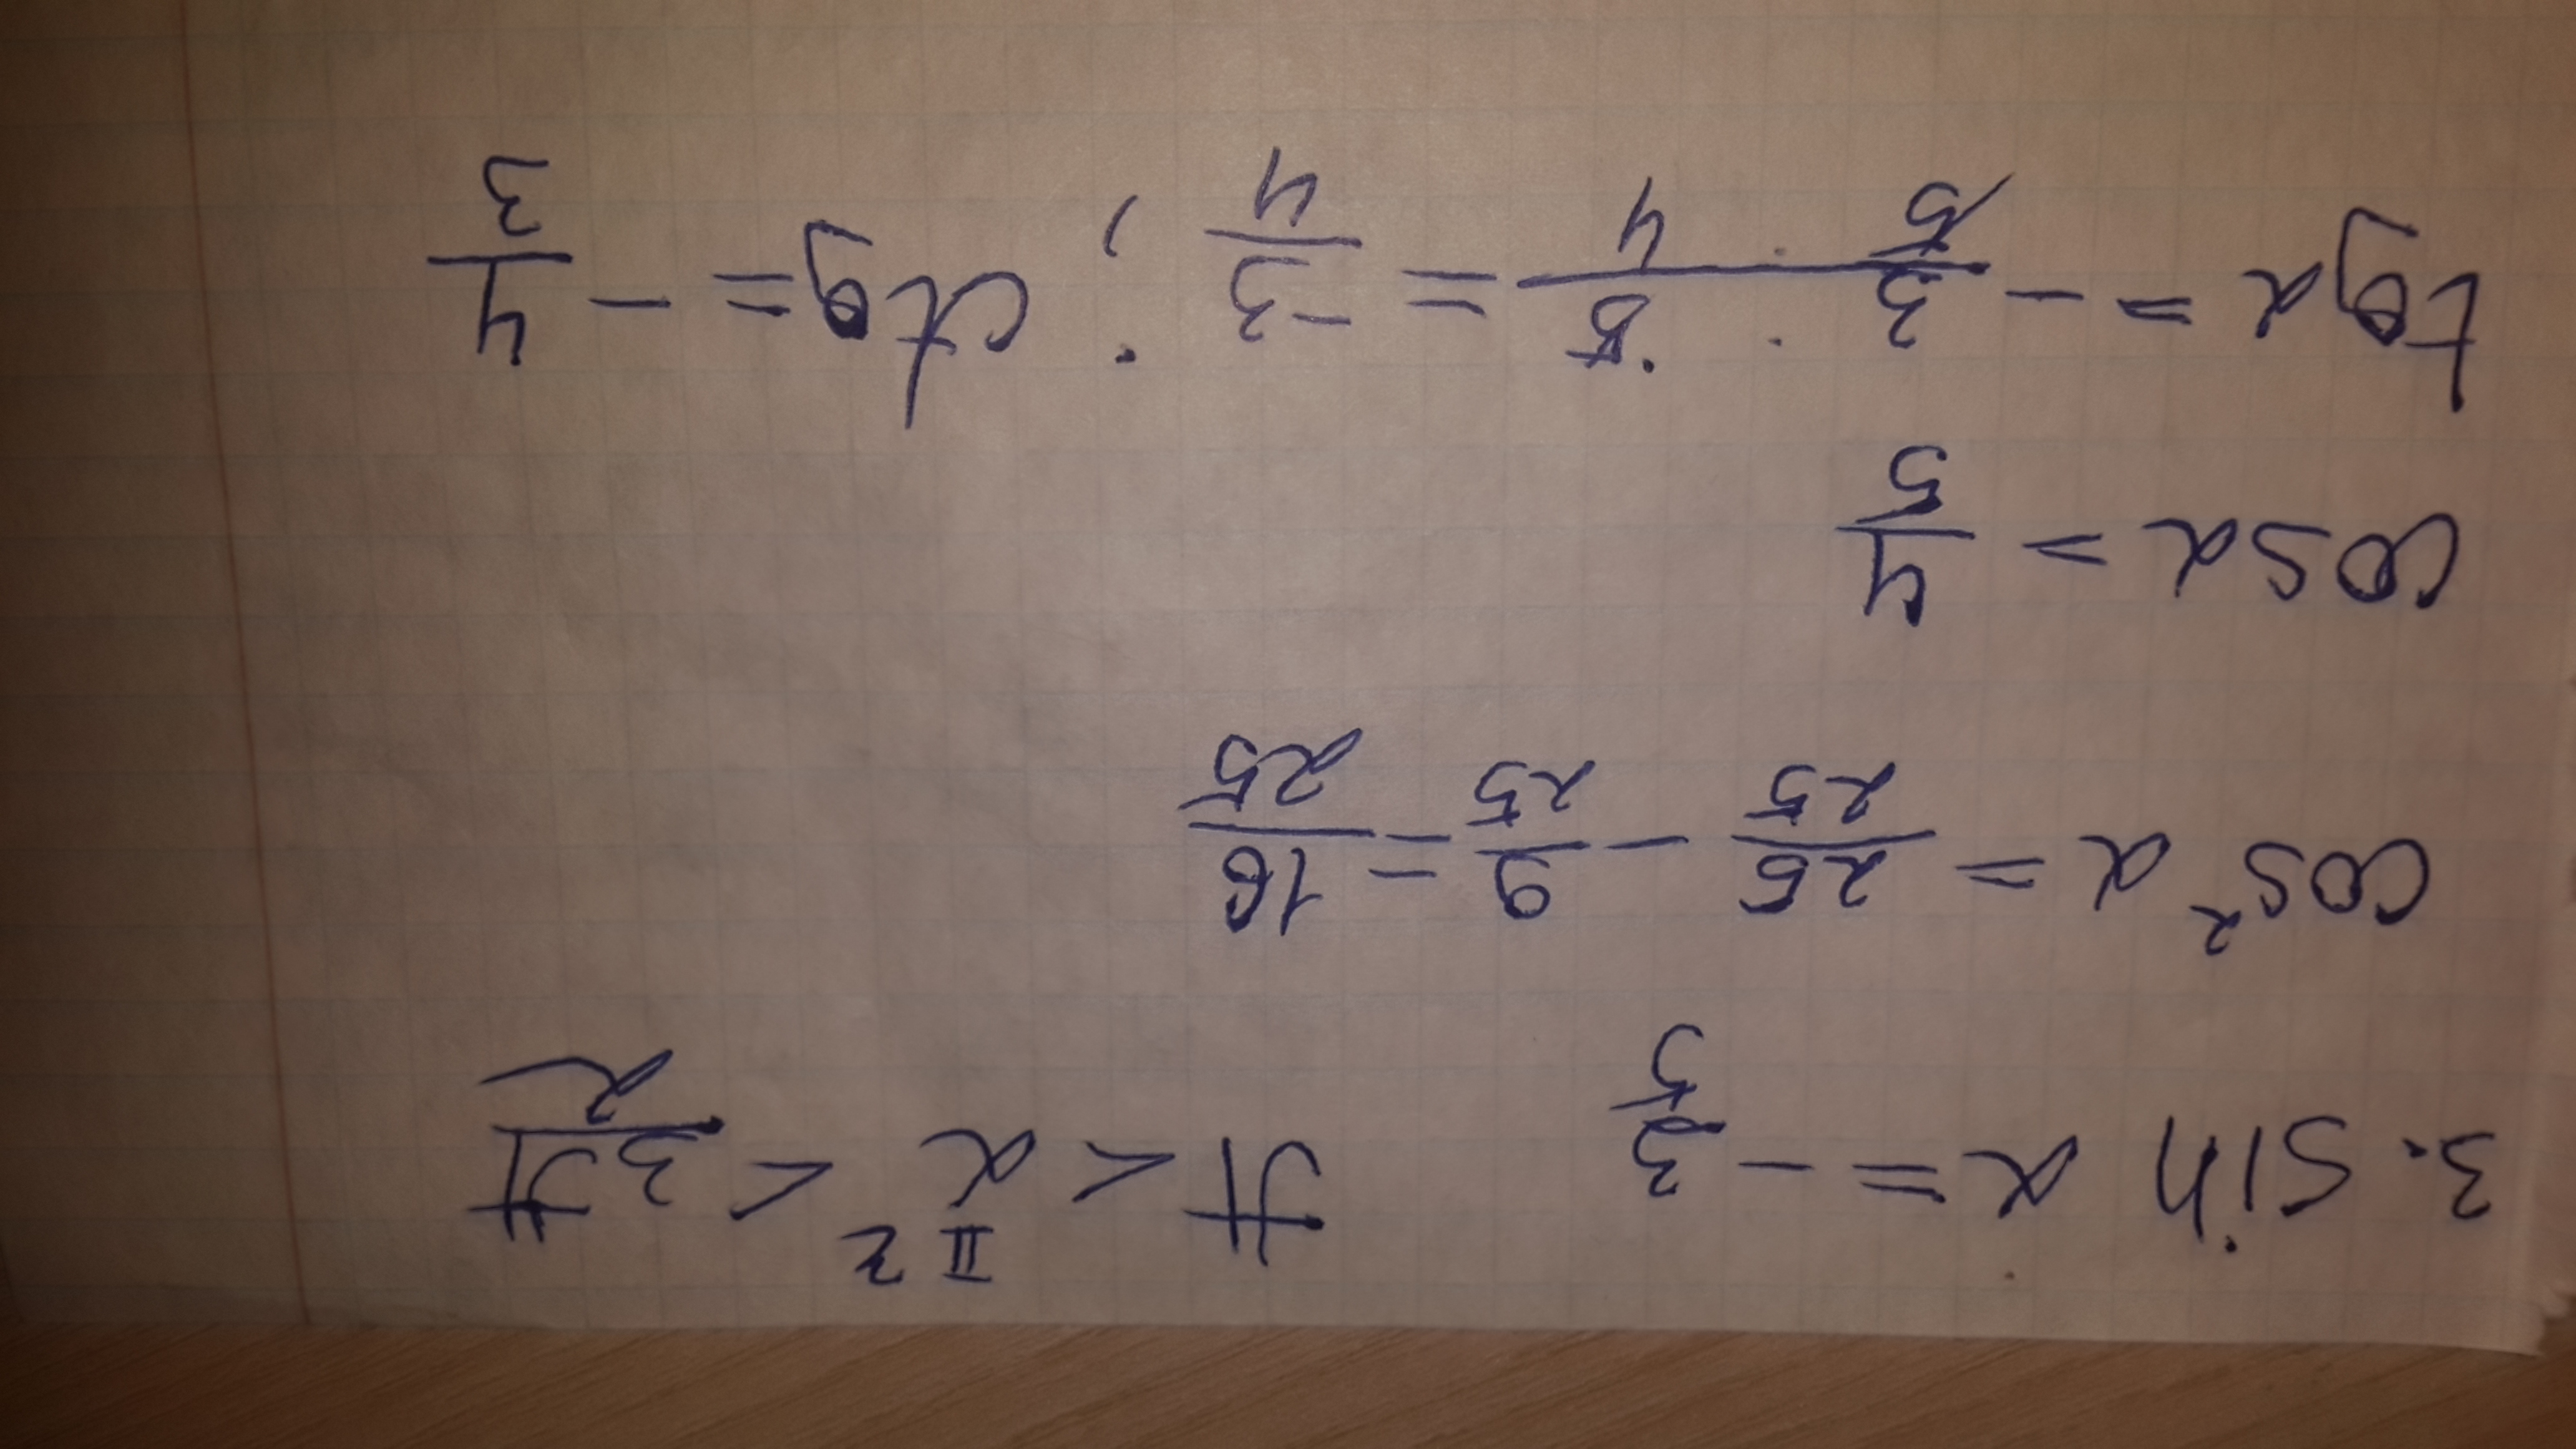 3. sin α = - 3/5    π < α < 3π/2    II 2
cos² α = 25/25 - 9/25 = 16/25
cos α = 4/5
tg α = - 3/5 · 5/4 = -3/4 ; ctg = - 4/3